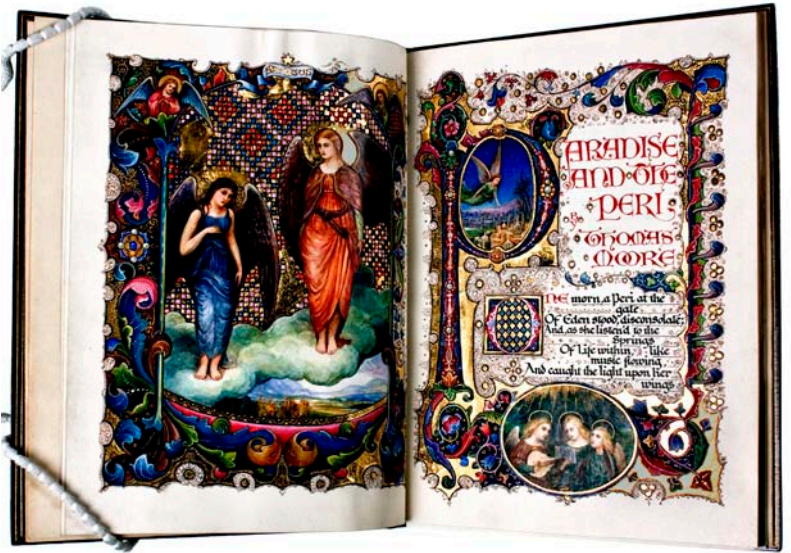 PARADISE
AND THE
PERI
THOMAS
MOORE
ONE morn, a Peri at the
gate
Of Eden stood, disconsolate;
And, as she listen'd to the
Springs
Of Life within, like
music flowing,
And caught the light upon her
wings